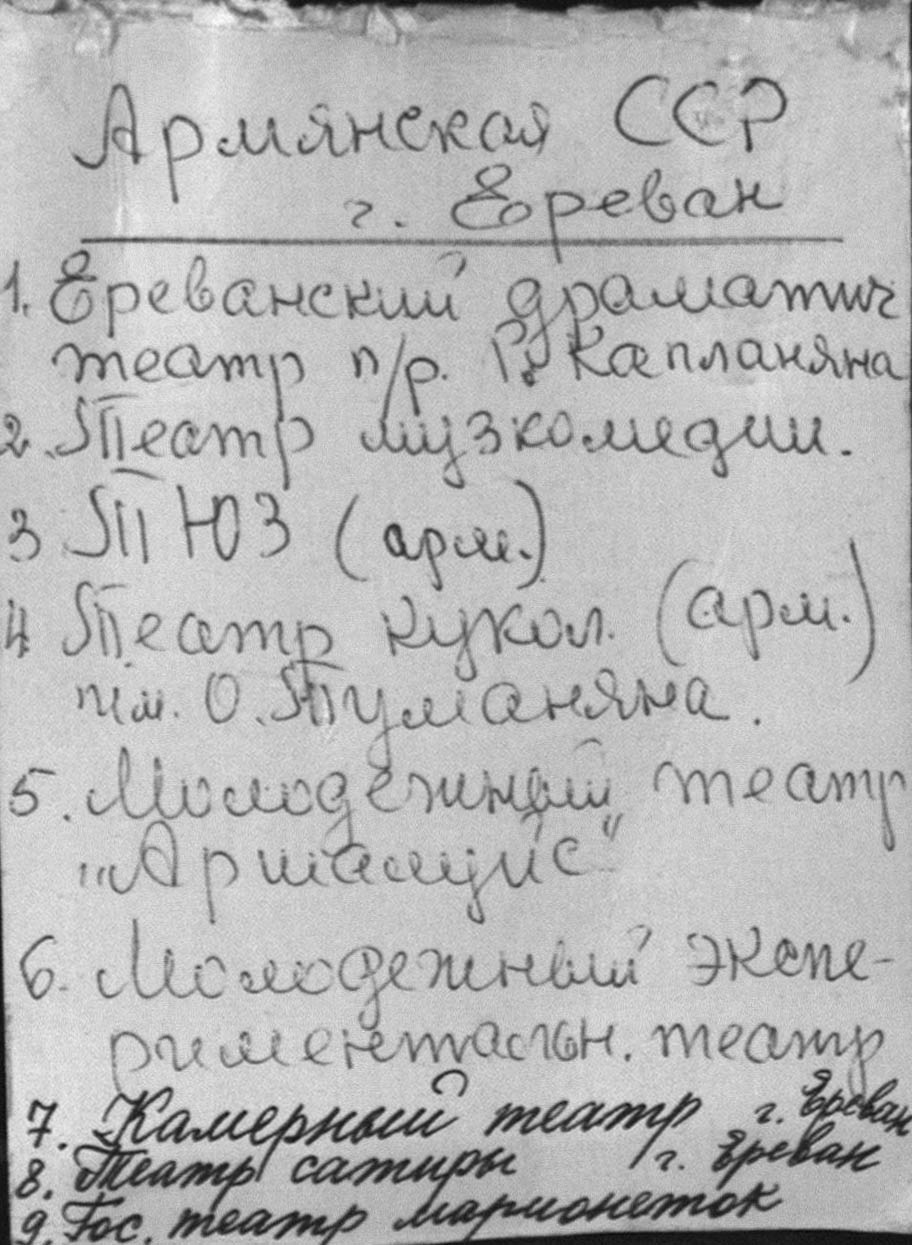 Армянская ССР
г. Ереван
1. Ереванский драматич
театр п/р. Г. Капланяна
2. Театр музкомедии.
3 ТЮЗ (арм.)
4 Театр кукол. (арм.)
им. О. Туманяна.
5. Молодежный театр
"Аршалуйс"
6. Молодежный экспе-
риментальн. театр
7. Камерный театр г. Ереван
8. Театр сатиры г. Ереван
9. Гос. театр марионеток